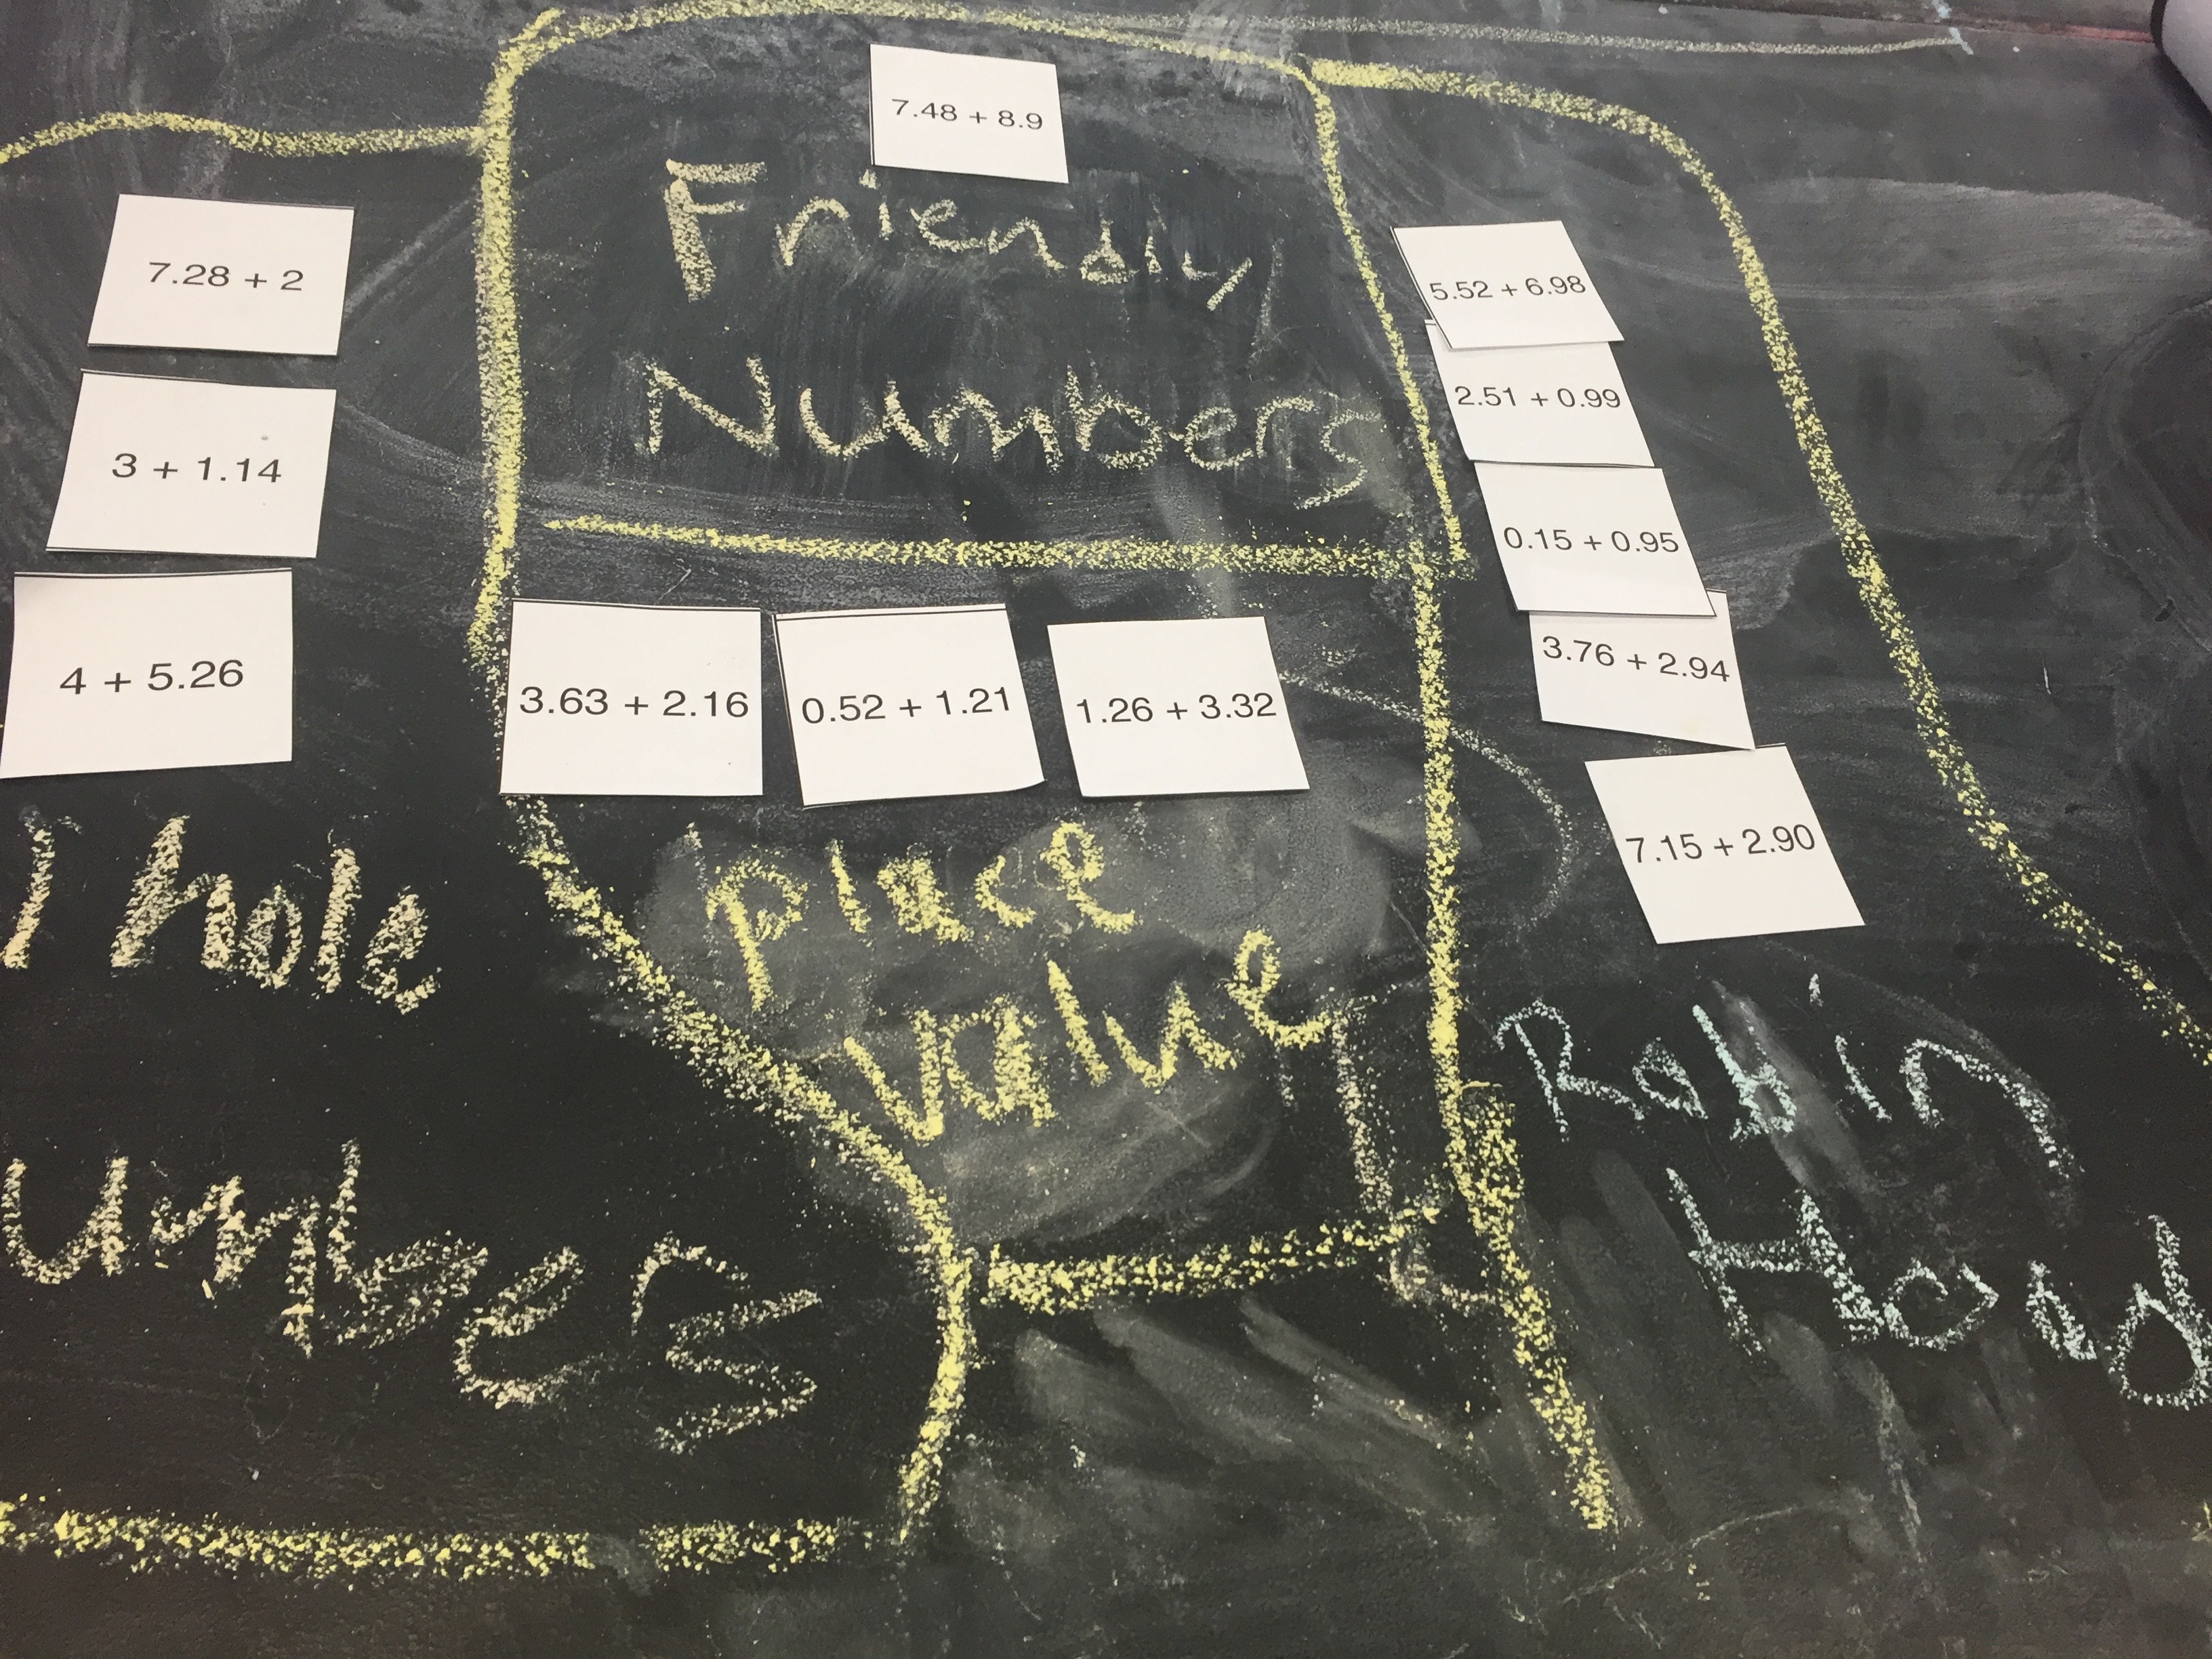 7.48 + 8.9
Friendly
Numbers
7.28 + 2
3 + 1.14
4 + 5.26
hole
umbers
3.63 + 2.16
0.52 + 1.21
1.26 + 3.32
place
value
5.52 + 6.98
2.51 + 0.99
0.15 + 0.95
3.76 + 2.94
7.15 + 2.90
Robin
Hood